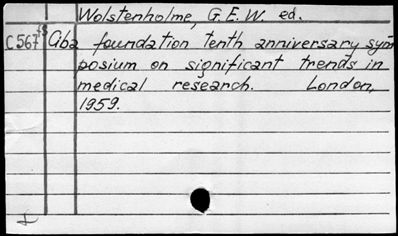 Wolstenholme, G.E.W. ed.
C567 Ciba foundation tenth anniversary sym
posium on significant trends in
medical research. London,
1959.